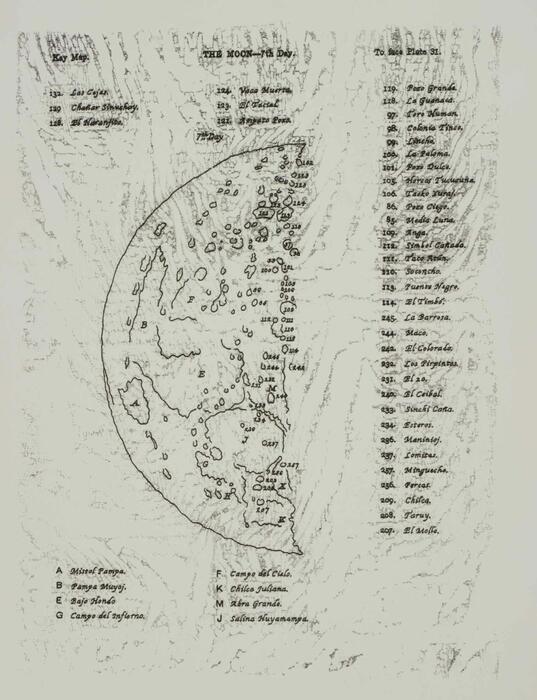 Key Map.
THE MOON—7th Day.
To face Plate 31.
132. Las Cejas.
129 Chañar Sinuchay.
128. El Naranjito.
124. Vaca Muerta.
123. El Tactal
121. Ampato Pozo.
7th Day.
119. Pozo Grande.
118. La Guanaca.
97. Toro Human.
98. Colonia Tinco.
99. Linche.
100. La Paloma.
101. Pozo Dulce.
105. Horcos Tucucuna.
106. Tacko Yuraj.
86. Pozo Ciego.
85. Media Luna.
109. Anga.
112. Simbol Cañada.
111. Taco Atún.
110. Soconcho.
113. Puente Negro.
114. El Timbó.
245. La Barrosa.
244. Maco.
242. El Colorado.
232. Los Pirpintos.
231. El 20.
240. El Ceibal.
233. Sinchi Caña.
234. Esteros.
296. Maniniej.
237. Lomitas.
257. Minguecho.
256. Percas.
209. Chilca.
208. Taruy.
207. El Mollo.
A Mistol Pampa.
B Pampa Muyoj.
E Bajo Hondo
G Campo del Infierno.
F Campo del Cielo.
K Chilca Juliana.
M Abra Grande.
J Salina Huyamampa.